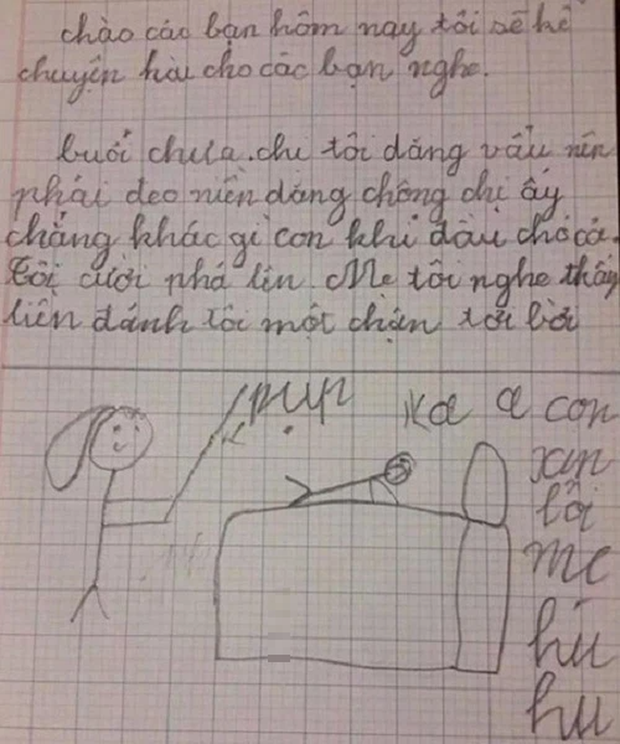 chào các bạn hôm nay tôi sẽ kể
chuyện hài cho các bạn nghe.
buổi chưa. chị tôi đăng vấu nên
phải đeo niền dăng chông chị ấy
chẳng khác gì con khỉ đầu chó cả.
Tôi cười phá lên. Mẹ tôi nghe thấy
liền đánh tôi một chận tơi bời
pụp
Ka a con
xin
lỗi
mẹ
hu
hu